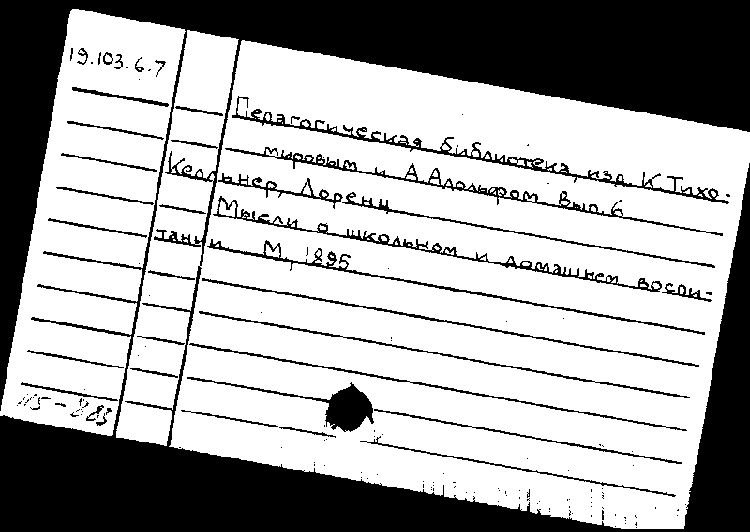 19.103.6.7
Педагогическая библиотека, изд. К. Тихо-
мировым и А. Адольфом Вып. 6
Келльнер, Лоренц
Мысли о школьном и домашнем воспи-
тании. М., 1895.